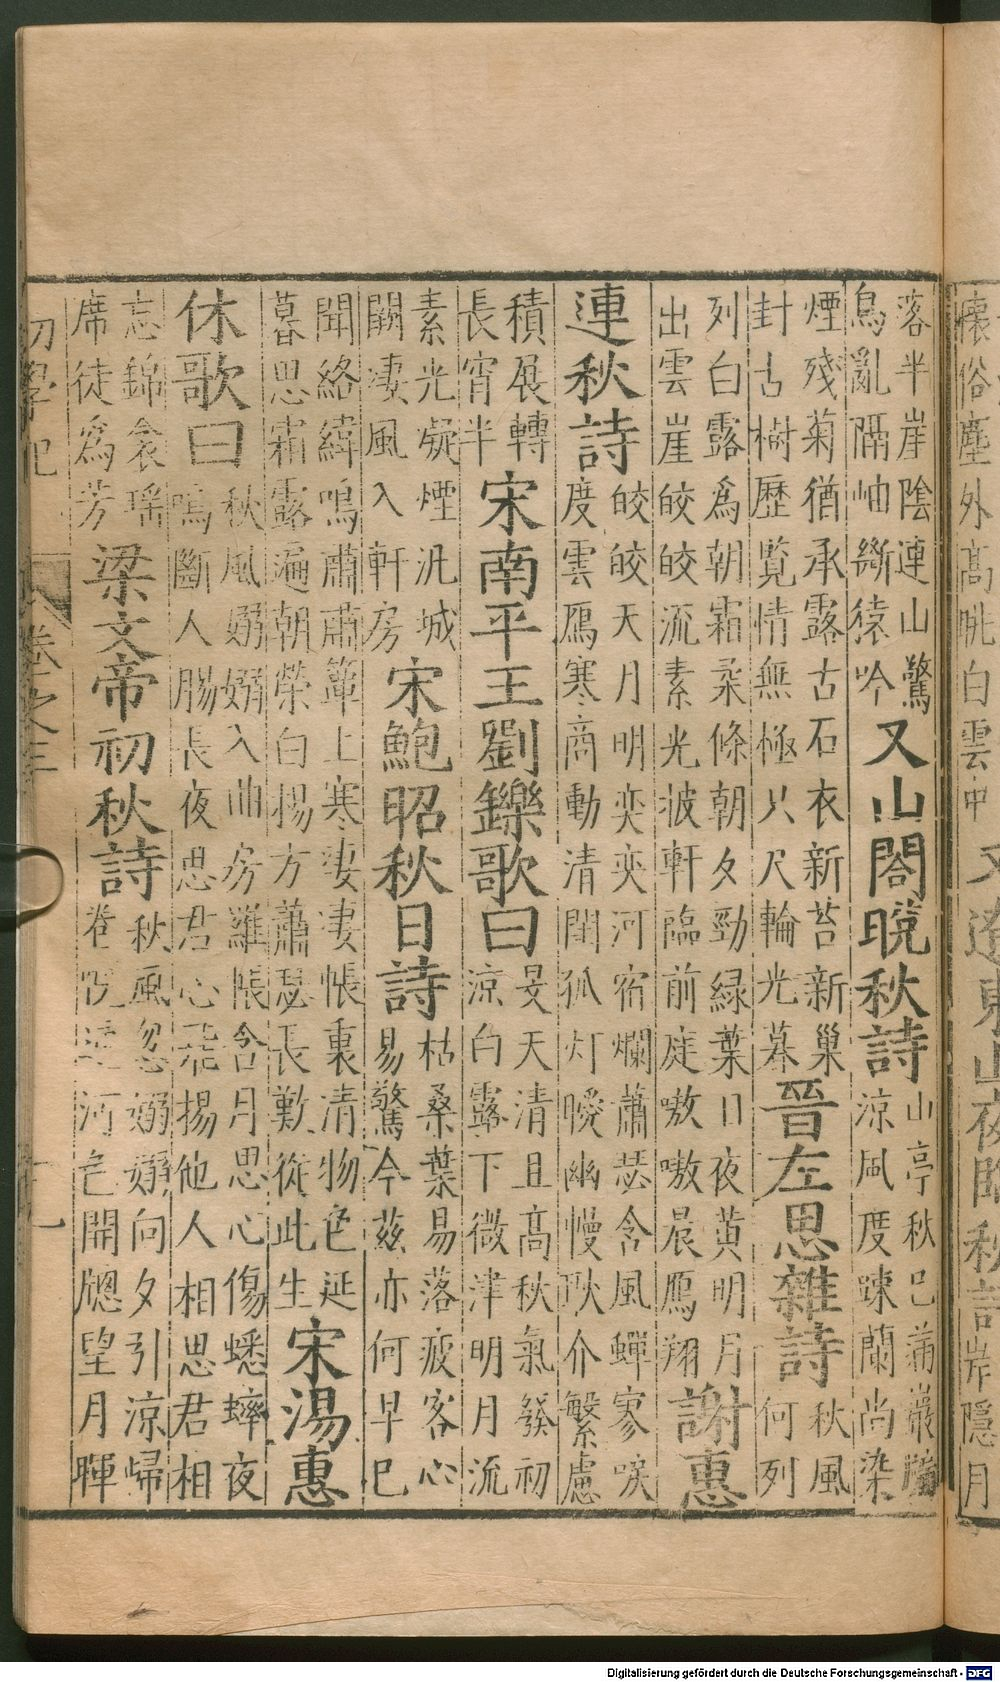 懷俗塵外高眺白雲中
又遼東山夜臨秋詩
岸隱月
落半崖陰連山驚
鳥亂隔岫斷猿吟
又山閣晚秋詩
山亭秋已滿巖牖
涼風度踈蘭尚染
煙殘菊猶承露古石衣新苔新巢
封古樹歷覽情無極只尺輪光暮
晉左思雜詩
秋風
何列
列白露爲朝霜柔條朝夕勁緑葉日夜黄明月
出雲崖皎皎流素光披軒臨前庭嗷嗷晨鴈翔
謝惠
連秋詩
皎皎天月明奕奕河宿爛蕭瑟含風蟬寥唳
度雲鴈寒商動清閨孤灯曖幽幔耿介繁慮
積展轉
長宵半
宋南平王劉鑠歌曰
旻天清且髙秋氣發初
涼白露下微津明月流
素光凝煙汎城
闕凄風入軒房
宋鮑昭秋日詩
枯桑葉易落疲客心
易驚今茲亦何早已
聞絡緯鳴蕭蕭簟上寒凄凄帳裏清物色延
暮思霜露遍朝榮白楊方蕭瑟長歎從此生
宋湯惠
休歌曰
秋風嫋嫋入曲房羅帳含月思心傷蟋蟀夜
鳴斷人腸長夜思君心飛揚他人相思君相
忘錦衾瑶
席徒爲芳
梁文帝初秋詩
秋風忽嫋嫋向夕引涼歸
卷幌通河色開牕望月暉
初學記 卷之三 十九
Digitalisierung gefördert durch die Deutsche Forschungsgemeinschaft - DFG